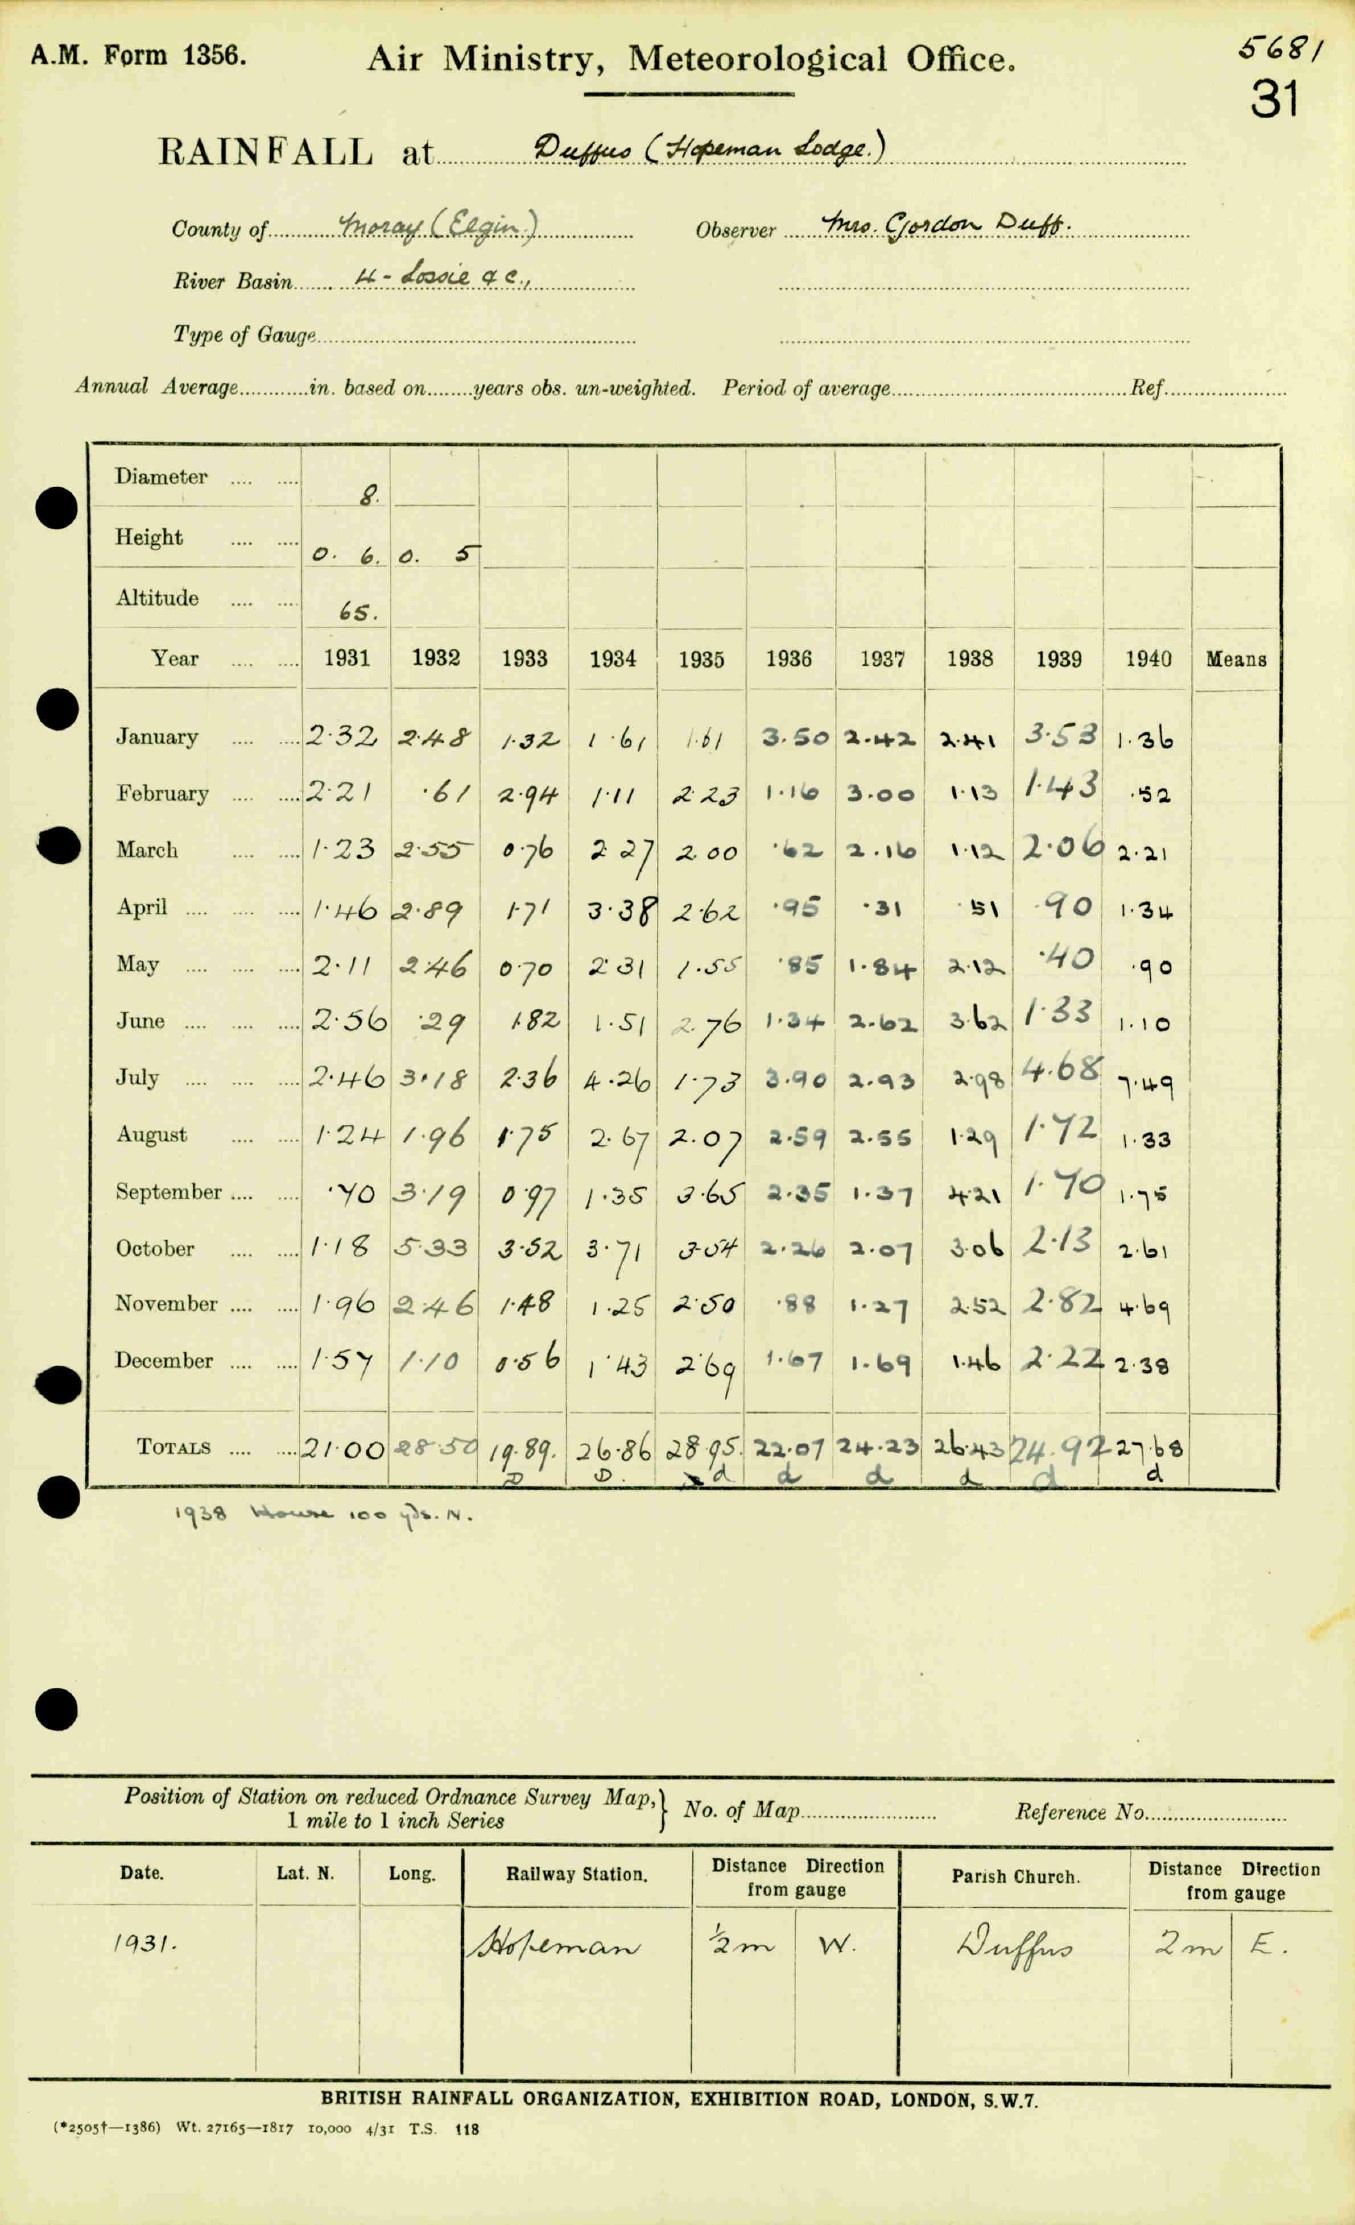 A.M. Form 1356. Air Ministry, Meteorological Office. 5681
31
RAINFALL at Duffus (Hopeman Lodge.)
County of Moray (Elgin) Observer Mrs. Gordon Duff.
River Basin 4 - Lossie &c.,
Type of Gauge
Annual Average in. based on years obs. un-weighted. Period of average Ref.
Diameter 8.
Height 0. 6. 0. 5
Altitude 65.
Year 1931 1932 1933 1934 1935 1936 1937 1938 1939 1940 Means
January 2.32 2.48 1.32 1.61 1.61 3.50 2.42 2.41 3.53 1.36
February 2.21 .61 2.94 1.11 2.23 1.16 3.00 1.13 1.43 .52
March 1.23 2.55 0.76 2.27 2.00 .62 2.16 1.12 2.06 2.21
April 1.46 2.89 1.71 3.38 2.62 .95 .31 .51 .90 1.34
May 2.11 2.46 0.70 2.31 1.55 .85 1.84 2.12 .40 .90
June 2.56 .29 1.82 1.51 2.76 1.34 2.62 3.62 1.33 1.10
July 2.46 3.18 2.36 4.26 1.73 3.90 2.93 2.98 4.68 7.49
August 1.24 1.96 1.75 2.67 2.07 2.59 2.55 1.29 1.72 1.33
September .70 3.19 0.97 1.35 3.65 2.35 1.37 4.21 1.70 1.75
October 1.18 5.33 3.52 3.71 3.54 2.26 2.07 3.06 2.13 2.61
November 1.96 2.46 1.48 1.25 2.50 .88 1.27 2.52 2.82 4.69
December 1.57 1.10 0.56 1.43 2.69 1.67 1.69 1.46 2.22 2.38
TOTALS 21.00 28.50 19.89. 26.86 28.95. 22.07 24.23 26.43 24.92 27.68
D D. d d d d d d
1938 House 100 yds. N.
Position of Station on reduced Ordnance Survey Map, } No. of Map Reference No.
1 mile to 1 inch Series
Date. Lat. N. Long. Railway Station. Distance Direction from gauge Parish Church. Distance Direction from gauge
1931. Hopeman ½ m W. Duffus 2 m E.
BRITISH RAINFALL ORGANIZATION, EXHIBITION ROAD, LONDON, S.W.7.
(*2505†—1386) Wt. 27165—1817 10,000 4/31 T.S. 118